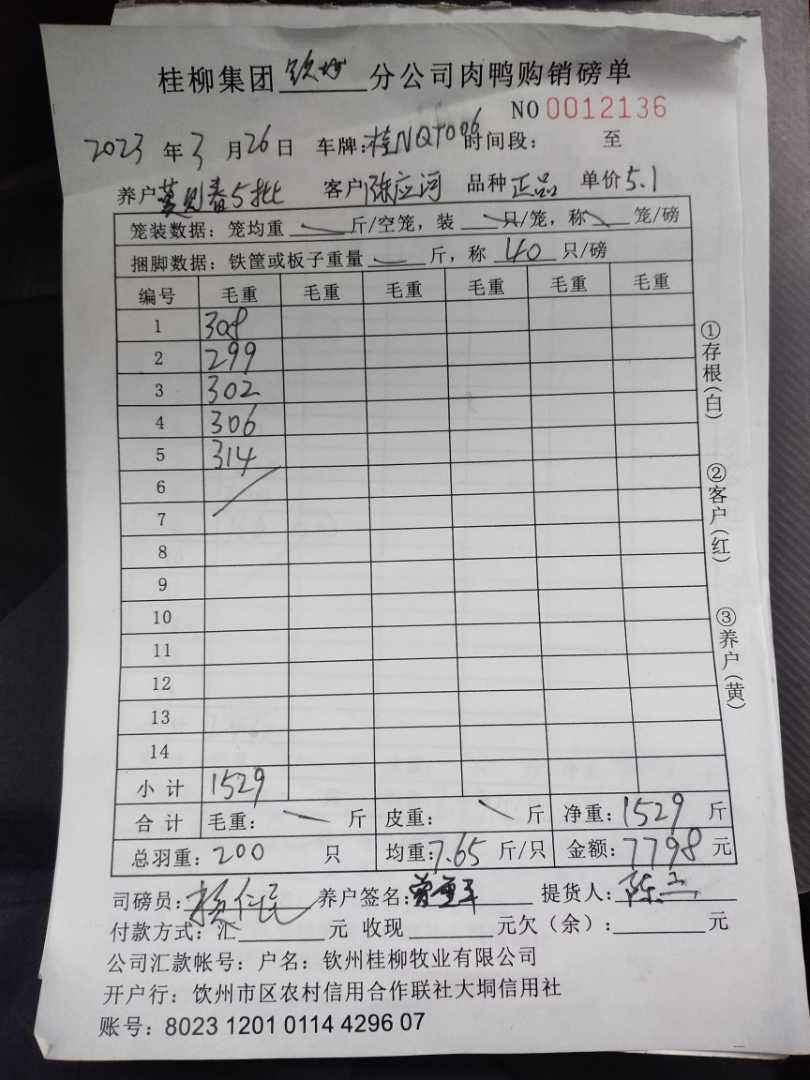 桂柳集团 钦州 分公司肉鸭购销磅单
NO 0012136
2023 年 3 月 26 日 车牌:桂NQT006 时间段: 至
养户 5批 客户 陈应河 品种 正品 单价 5.1
笼装数据:笼均重 斤/空笼,装 只/笼,称 笼/磅
捆脚数据:铁筐或板子重量 斤,称 40 只/磅
编号 毛重 毛重 毛重 毛重 毛重 毛重
1 308
2 299
3 302
4 306
5 314
6
7
8
9
10
11
12
13
14
小计 1529
合计 毛重: 斤 皮重: 斤 净重:1529 斤
总羽重:200 只 均重:7.65 斤/只 金额:7798 元
司磅员:杨仁民 养户签名: 提货人:陈
付款方式:汇 元 收现 元欠(余): 元
公司汇款帐号:户名:钦州桂柳牧业有限公司
开户行:钦州市区农村信用合作联社大垌信用社
账号:8023 1201 0114 4296 07
①存根(白)
②客户(红)
③养户(黄)